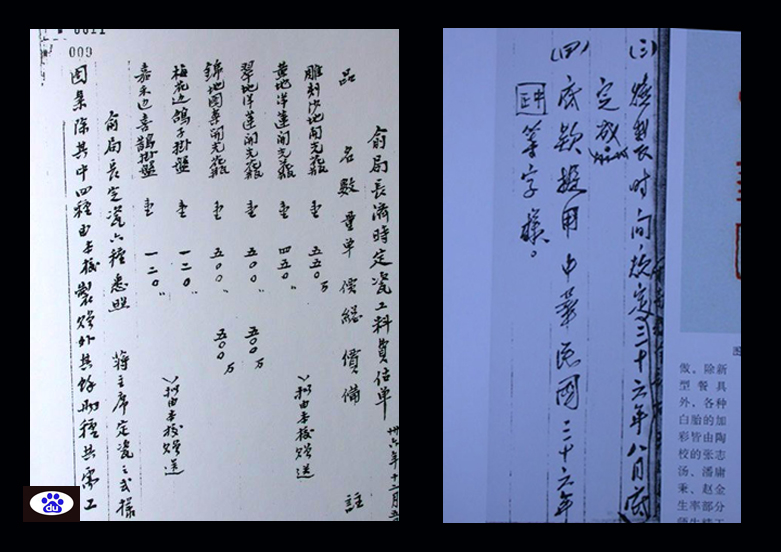 009
卅六年十二月
俞局長濟時定瓷工料費估單
品名 數量 單價 總價 備註
雕刻沙地開光花瓶 壹 五五〇万
黄地洋蓮開光花瓶 壹 四五〇〃 擬由本校贈送
翠地洋蓮開光花瓶 壹 五〇〇〃 五〇〇万
錦地圖案開光花瓶 壹 五〇〇〃 五〇〇万
梅花边鴿子掛盤 壹 一二〇〃
嘉禾边喜鵲掛盤 壹 一二〇〃 擬由本校贈送
俞局長定瓷六種悉照 蔣主席定瓷之式樣
圖案除其中四種由本校製贈外其餘兩種共需工
(三)燒製时间 規定三十六年八月底
完成
(四)底款提用中華民國三十六年
中正等字樣。
做、除新
型餐具
外、各种
白胎的加
彩皆由陶
校的张志
汤、潘庸
秉、赵金
生率部分
du